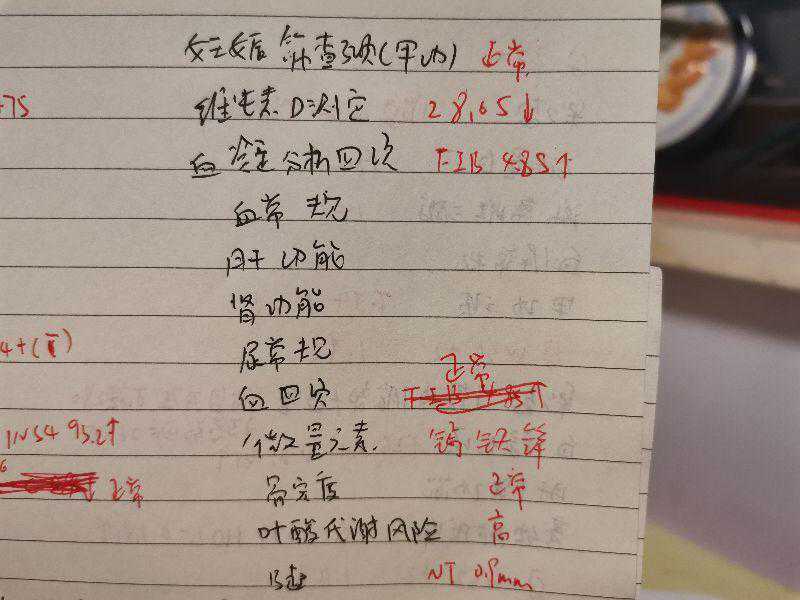 妊娠筛查项(甲功) 正常
75 维生素D测定 28.05↓
血凝分析四项 FIB 4.85↑
血常规
肝功能
肾功能
尿常规
血四项 正常
INS4 95.2↑ 微量元素 钙铁锌
正常 骨密度 正常
叶酸代谢风险 高
B超 NT 0.9mm